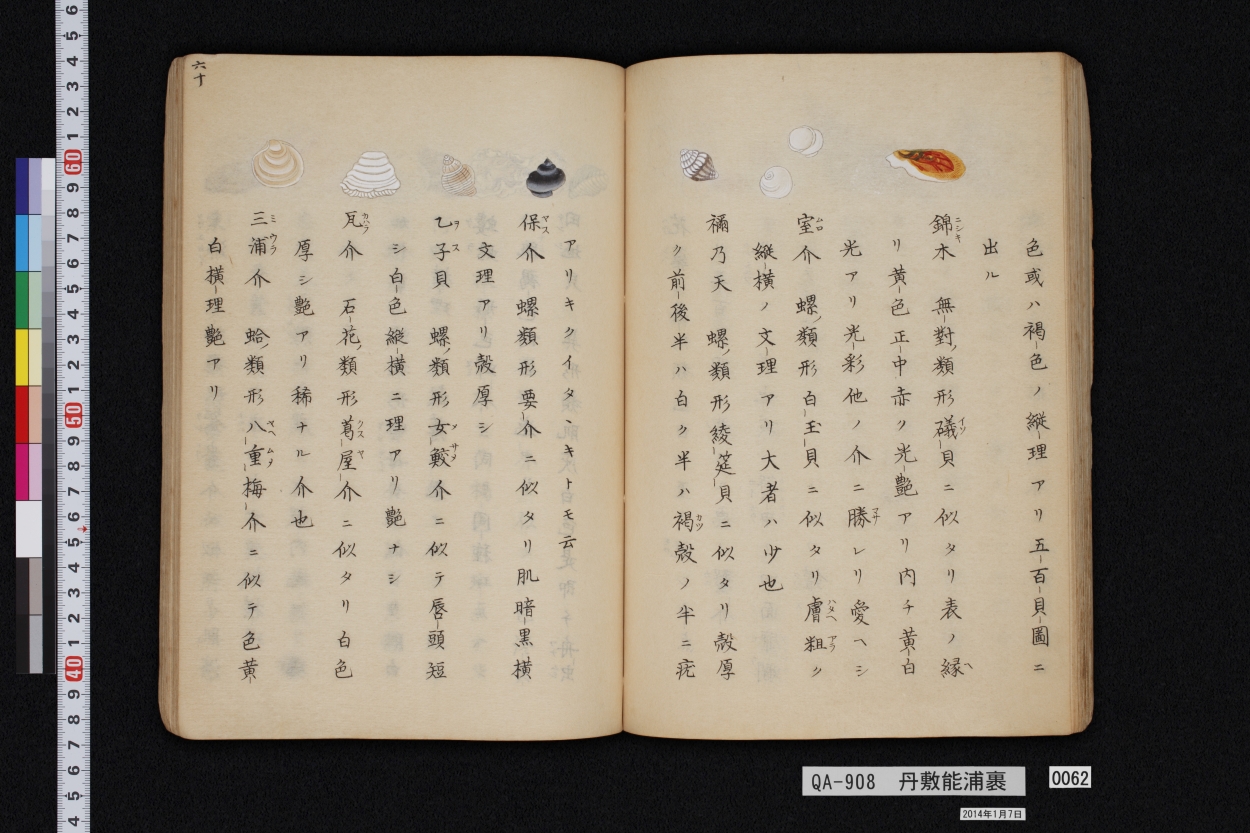 色或ハ褐色ノ縦理アリ五百貝圖ニ
出ル
錦木 無對ノ類形礒貝ニ似タリ表ノ縁
リ黄色正中赤ク光艶アリ内チ黄白
光アリ光彩他ノ介ニ勝レリ愛ヘシ
室介 螺ノ類形白玉貝ニ似タリ膚粗ク
縦横ノ文理アリ大者ハ少也
禰乃天 螺ノ類形綾筵貝ニ似タリ殻厚
ク前後半ハ白ク半ハ褐殻ノ半ニ疣
アリキクイタヽキトモ云
保介 螺ノ類形要介ニ似タリ肌暗黒横
文理アリ殻厚シ
乙子貝 螺ノ類形女鮫介ニ似テ唇頭短
シ白色縦横ニ理アリ艶ナシ
瓦介 石花ノ類形葛屋介ニ似タリ白色
厚シ艶アリ稀ナル介也
三浦介 蛤ノ類形八重梅介ニ似テ色黄
白横理艶アリ
六十
QA-908 丹敷能浦裹
0062
2014年1月7日